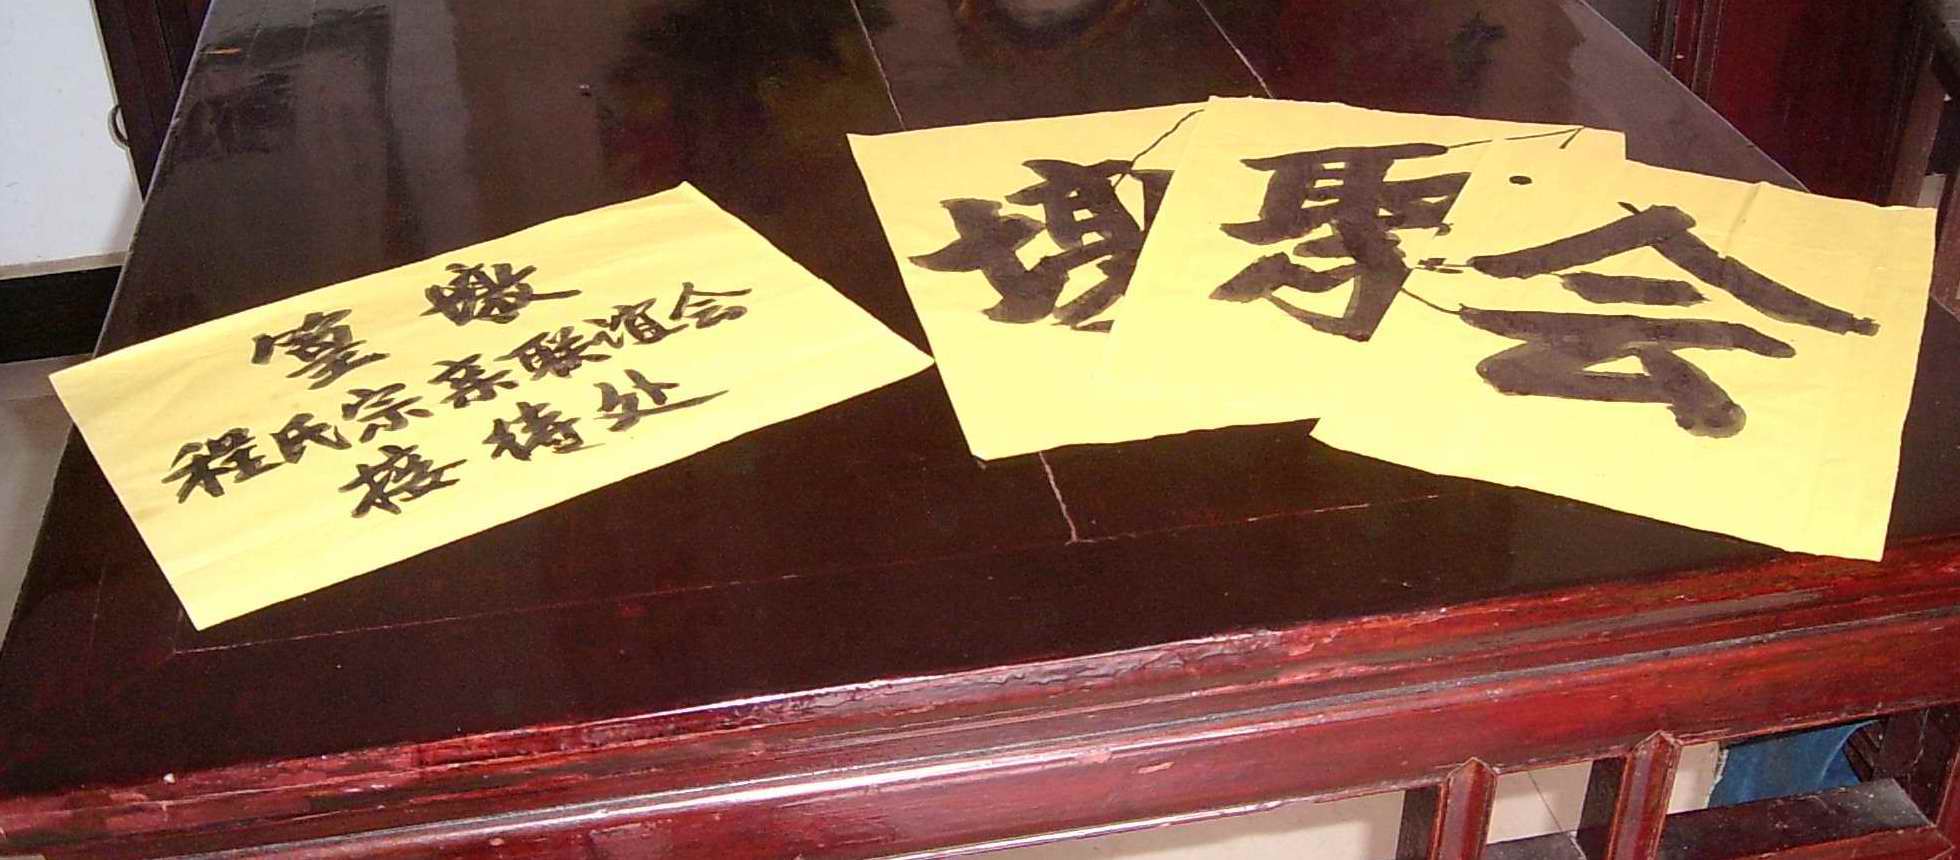 篁墩
程氏宗亲联谊会
接待处
聚会